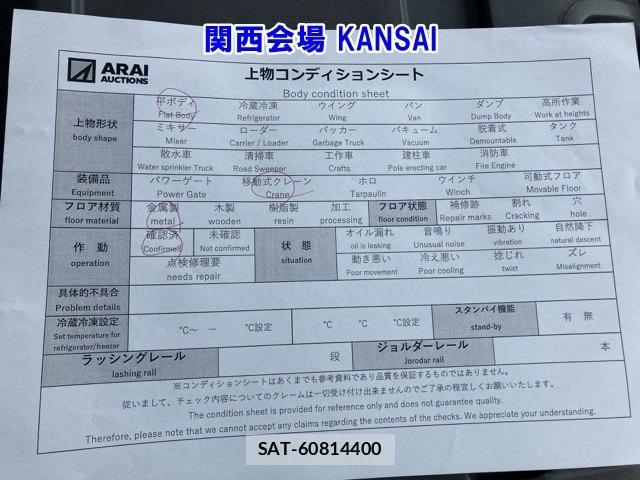 関西会場 KANSAI
ARAI
AUCTIONS
上物コンディションシート
Body condition sheet
上物形状
body shape
平ボディ 冷蔵冷凍 ウイング バン ダンプ 高所作業
Flat Body Refrigerator Wing Van Dump Body Work at heights
ミキサー ローダー パッカー バキューム 脱着式 タンク
Mixer Carrier / Loader Garbage Truck Vacuum Demountable Tank
散水車 清掃車 工作車 建柱車 消防車
Water sprinkler Truck Road Sweeper Crafts Pole erecting car Fire Engine
装備品
Equipment
パワーゲート 移動式クレーン ホロ ウインチ 可動式フロア
Power Gate Crane Tarpaulin Winch Movable Floor
フロア材質
floor material
金属製 木製 樹脂製 加工
metal wooden resin processing
フロア状態
floor condition
補修跡 割れ 穴
Repair marks Cracking hole
作動
operation
確認済 未確認
Confirmed Not confirmed
点検修理要
needs repair
状態
situation
オイル漏れ 音鳴り 振動あり 自然降下
oil is leaking Unusual noise vibration natural descent
動き悪い 冷え悪い 捻じれ ズレ
Poor movement Poor cooling twist Misalignment
具体的不具合
Problem details
冷蔵冷凍設定
Set temperature for
refrigerator/freezer
℃～ ー ℃設定 ℃ ℃ ℃設定
スタンバイ機能
stand-by
有 無
ラッシングレール
lashing rail
段
ジョルダーレール
Jorodar rail
本
※コンディションシートはあくまでも参考資料であり品質を保証するものではありません。
従いまして、チェック内容についてのクレームは一切受け付け出来ませんのでご了承の程宜しくお願いいたします。
The condition sheet is provided for reference only and does not guarantee quality.
Therefore, please note that we cannot accept any claims regarding the contents of the checks. We appreciate your understanding.
SAT-60814400